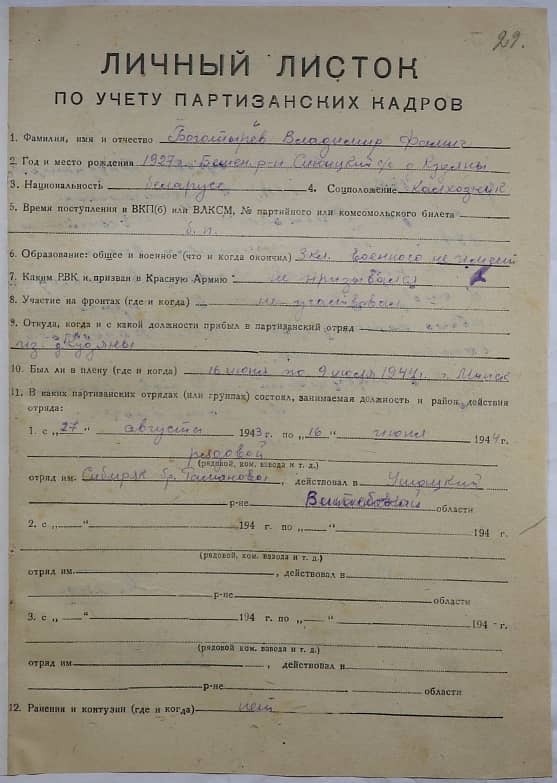 29.
ЛИЧНЫЙ ЛИСТОК
ПО УЧЕТУ ПАРТИЗАНСКИХ КАДРОВ
1. Фамилия, имя и отчество Богатырёв Владимир
2. Год и место рождения 1927 г. с/с д. Кудяны
3. Национальность беларусс 4. Соцположение Колхозник
5. Время поступления в ВКП(б) или ВЛКСМ, № партийного или комсомольского билета
б. п.
6. Образование: общее и военное (что и когда окончил) 3 кл. Военного не имеет
7. Каким РВК и призван в Красную Армию не призывался
8. Участие на фронтах (где и когда) не участвовал
9. Откуда, когда и с какой должности прибыл в партизанский отряд
из д. Кудяны
10. Был ли в плену (где и когда) 16 июня по 9 июля 1944 г. г. Минск
11. В каких партизанских отрядах (или группах) состоял, занимаемая должность и район действия
отряда:
1. с „27“ августа 1943 г. по „16“ июня 1944 г.
рядовой
(рядовой, ком. взвода и т. д.)
отряд им. Сибиряк бр. Романова, действовал в Ушацкий
р-не Витебской области
2. с „ “ 194 г. по „ “ 194 г.
(рядовой, ком. взвода и т. д.)
отряд им. , действовал в
р-не области
3. с „ “ 194 г. по „ “ 194 г.
(рядовой, ком. взвода и т. д.)
отряд им , действовал в
р-не области
12. Ранения и контузии (где и когда) нет